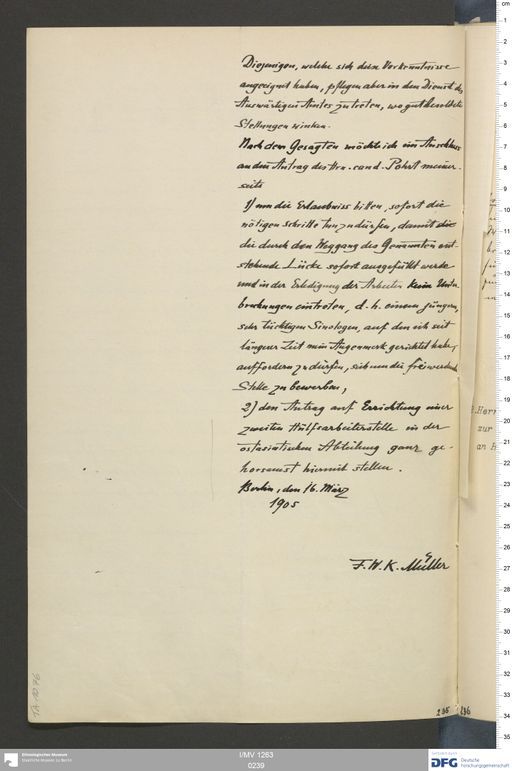 Diejenigen, welche sich diese Vorkenntnisse
angeeignet haben, pflegen aber in den Dienst des
Auswärtigen Amtes zu treten, wo gut besoldete
Stellungen winken.
Nach dem Gesagten möchte ich im Anschluss
an den Antrag des Hrn. cand. Pohrt meiner-
seits
1) um die Erlaubniss bitten, sofort die
nötigen Schritte tun zu dürfen, damit die
die durch den Weggang des Genannten ent-
stehende Lücke sofort ausgefüllt werde
und in der Erledigung der Arbeiten keine Unter-
brechungen eintreten, d. h. einem jüngern,
sehr tüchtigen Sinologen, auf den ich seit
längerer Zeit mein Augenmerk gerichtet habe,
auffordern zu dürfen, sich um die freiwerdende
Stelle zu bewerben,
2) den Antrag auf Errichtung einer
zweiten Hülfsarbeiterstelle in der
ostasiatischen Abteilung ganz ge-
horsamst hiermit stellen.
Berlin, den 16. März
1905
F. W. K. Müller
Herr
zur
an H
TA 1076
235
236
I/MV 1263
0239
Ethnologisches Museum
Staatliche Museen zu Berlin
DFG
Deutsche
Forschungsgemeinschaft